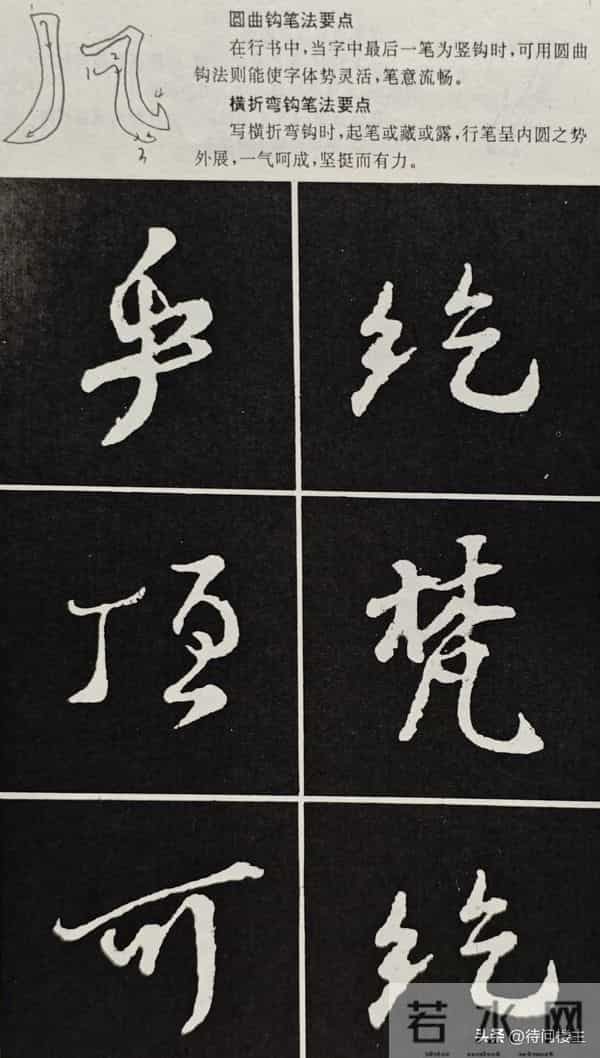 圆曲钩笔法要点
在行书中,当字中最后一笔为竖钩时,可用圆曲
钩法则能使字体势灵活,笔意流畅。
横折弯钩笔法要点
写横折弯钩时,起笔或藏或露,行笔呈内圆之势
外展,一气呵成,坚挺而有力。
1
2
1
4
3
乎 纥
顶 梵
可 纥
若水网
头条@待问楼主